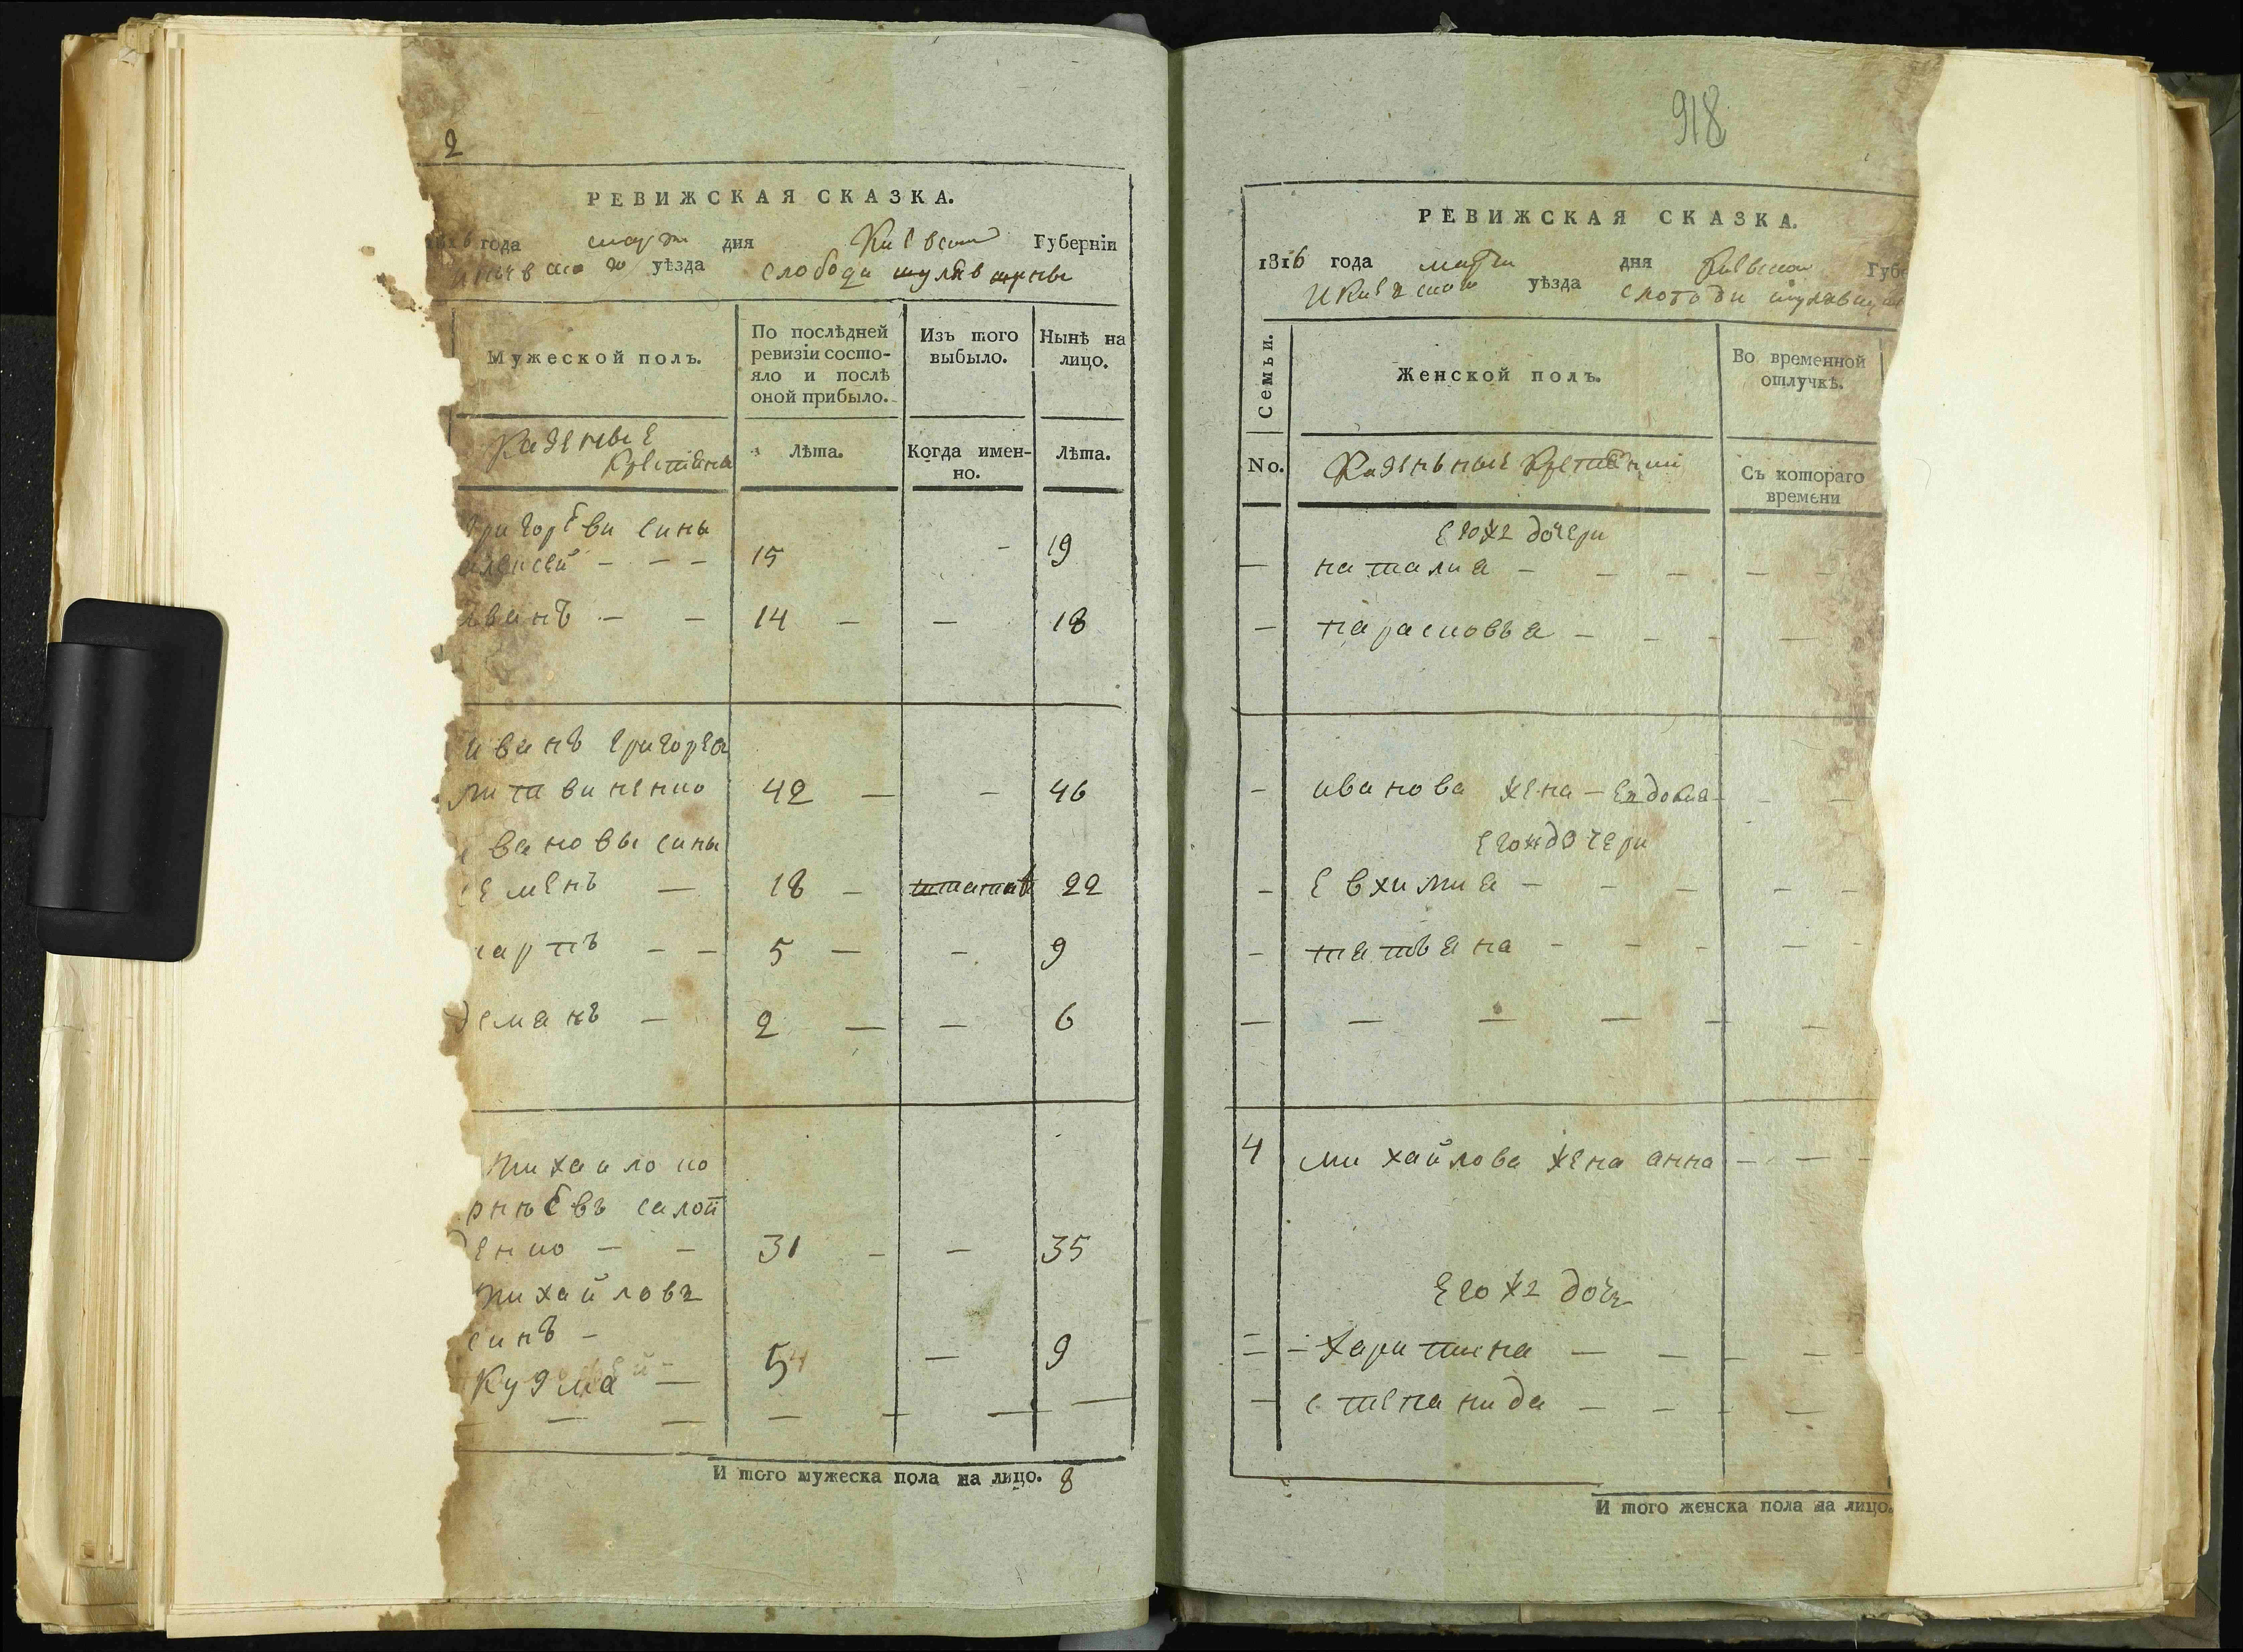 2
РЕВИЖСКАЯ СКАЗКА.
1816 года март дня Киевской Губерніи
уѣзда слободи шулявщины
Мужеской полъ.
По послѣдней ревизіи состо-
яло и послѣ
оной прибыло.
Изъ того
выбыло.
Нынѣ на
лицо.
Казенные
Крестіяна
Лѣта.
Когда имен-
но.
Лѣта.
Григорєви сины
алексей — — — 15 — 19
Иванъ — — 14 — — 18
иванъ григорєв
литвиненко 42 — — 46
ивановы сины
семенъ — 18 — 22
карпъ — — 5 — — 9
демянъ — 2 — — 6
михаило ко
рнѣєвъ салой
денко — — 31 — — 35
михайловъ
синъ —
Кузма — 5 — 9
И того мужеска пола на лицо. 8
918
РЕВИЖСКАЯ СКАЗКА.
1816 года марта дня Киевской Губе
И Киевского уѣзда слободи шулявщи
Семьи.
Женской полъ.
Во временной
отлучкѣ.
No.
Съ котораго
времени
его жъ дочери
— наталия — — — — —
— парасковъя — — — —
— иванова жена — Евдокия — —
его ж дочери
— Евхимия — — — — —
— татъяна — — — — —
— — — — — —
4 михайлова жена анна — — —
Его жъ дочъ
— харитина — — — —
— степанида — — — —
И того женска пола на лицо.